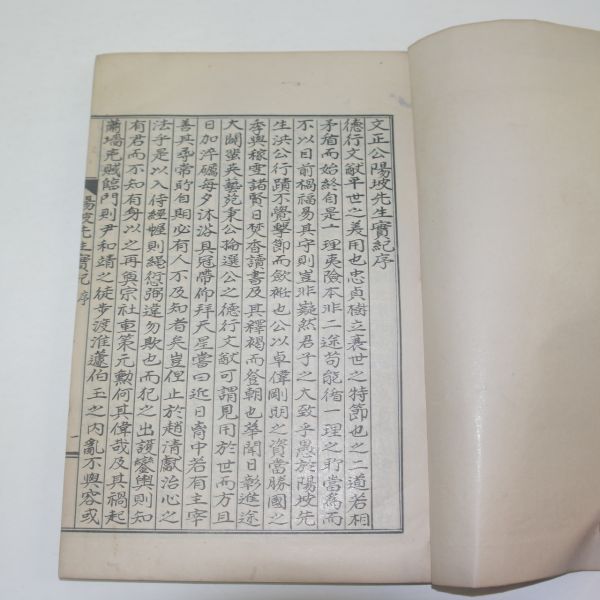 文正公陽坡先生實紀序
德行文猷平世之美用也忠貞樹立衰世之特節也之二道若相
矛盾而始終自是一理夷險本非二途苟能循一理之所當爲而
不以目前禍福易其守則豈非嶷然君子之大致乎愚於陽坡先
生洪公行蹟不覺擊節而斂袵也公以卓偉剛明之資當勝國之
季與稼雲諸賢日焚香讀書及其釋褐而登朝也華聞日彰進途
大闢蜚英藝苑秉公掄選公之德行文猷可謂見用於世而方且
日加淬礪每夕沐浴具冠帶仰拜天星嘗曰近日胷中若有主宰
善其尋常所自期必有人不及知者矣豈但止於趙清獻治心之
法乎是以入侍經幄則繩愆弼違勿欺也而犯之出護鑾輿則知
有君而不知有身以之再與宗社重策元勲何其偉哉及其禍起
蕭墻兇賊臨門則尹和靖之徒步渡淮蘧伯玉之內亂不與容或
陽坡先生實紀 序 一